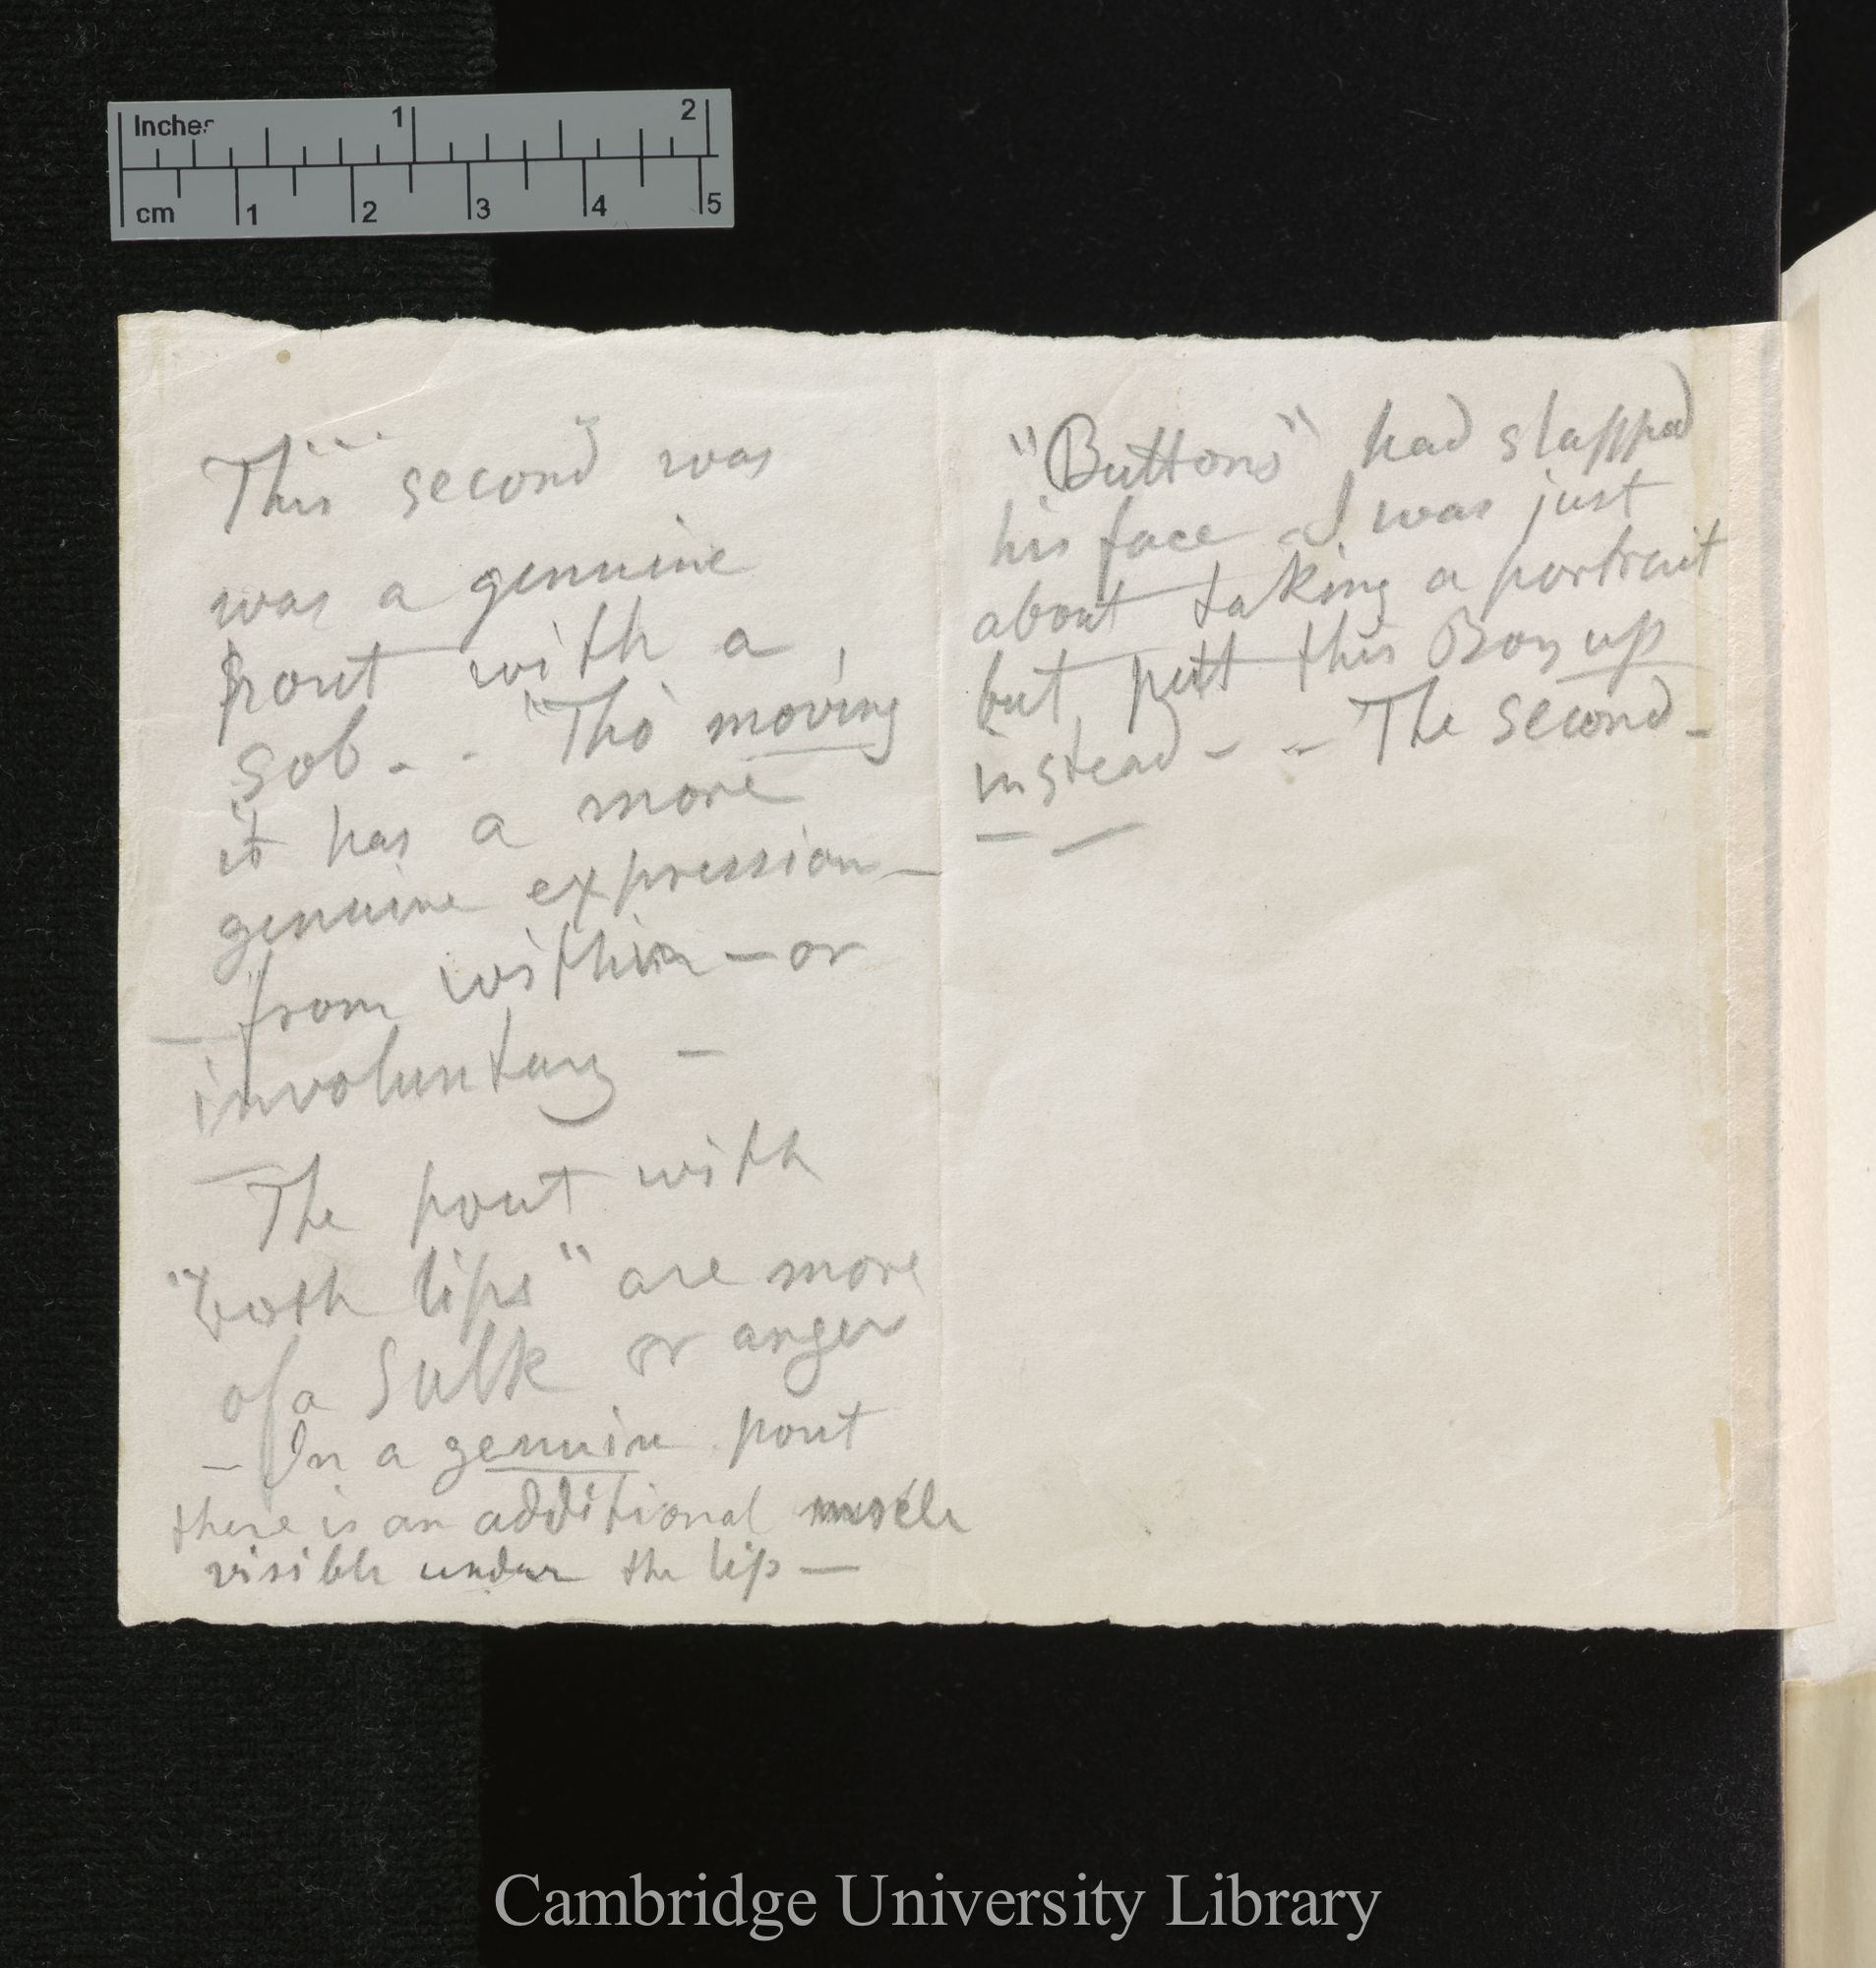 Inches 1 2
cm 1 2 3 4 5
This second was
was a genuine
pout with a
sob - - "Tho' moving
it has a more
genuine expression -
- from within - or
involuntary -
- The pout with
"both lips" are more
of a Sulk or anger
- In a genuine pout
there is an additional muscle
visible under the lip -
"Buttons" had slapped
his face - I was just
about taking a portrait
but putt this Boy up
instead - - The second -
Cambridge University Library